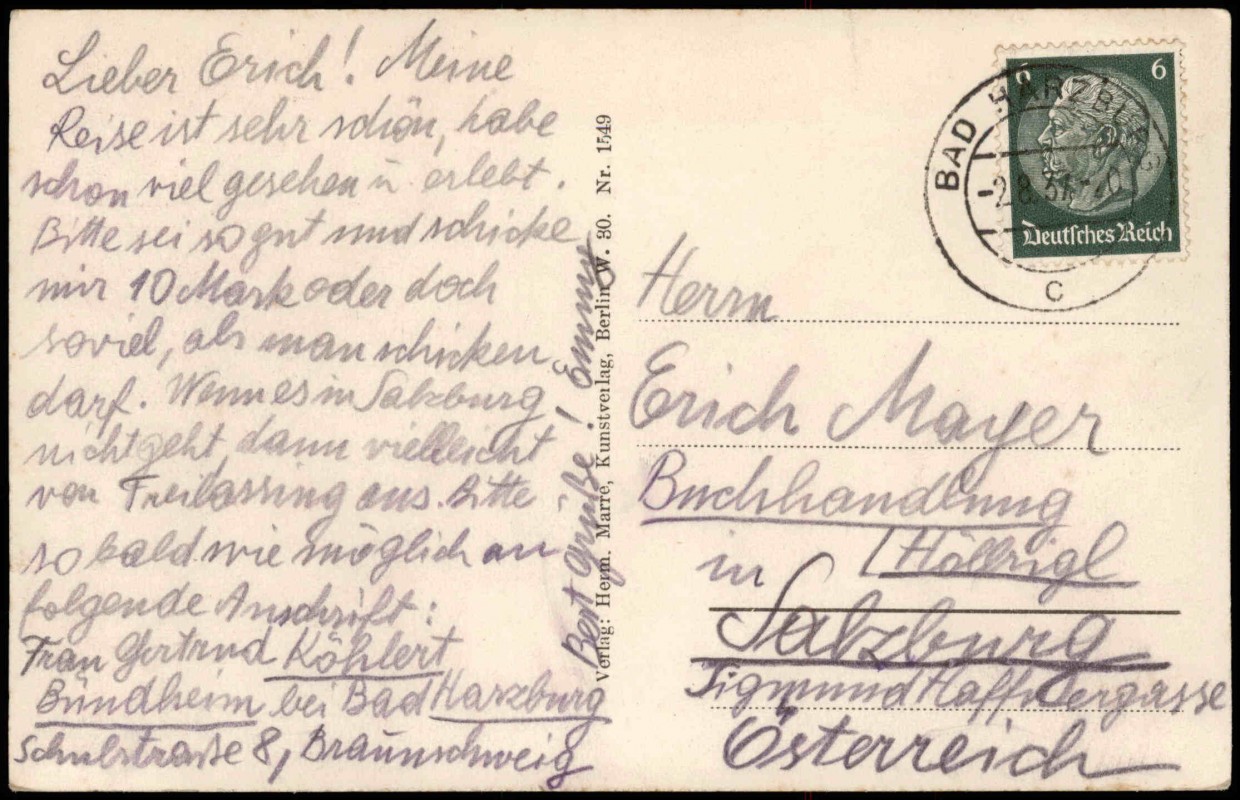 Lieber Erich! Meine
Reise ist sehr schön, habe
schon viel gesehen u erlebt.
Bitte sei so gut und schicke
mir 10 Mark oder doch
soviel, als man schicken
darf. Wenn es in Salzburg
nicht geht, dann vielleicht
von Freilassing aus. Bitte
so bald wie möglich an
folgende Anschrift:
Frau Gertrud Köhlert
Bündheim bei Bad Harzburg
Schulstraße 8, Braunschweig
Best Grüße! Emma
Verlag: Herm. Marre, Kunstverlag, Berlin W. 30. Nr. 1549
6 6
Deutsches Reich
BAD HARZBURG
c
Herrn
Erich Mayer
Buchhandlung
Höllrigl
in
Salzburg
Sigmund Haffnergasse
Österreich